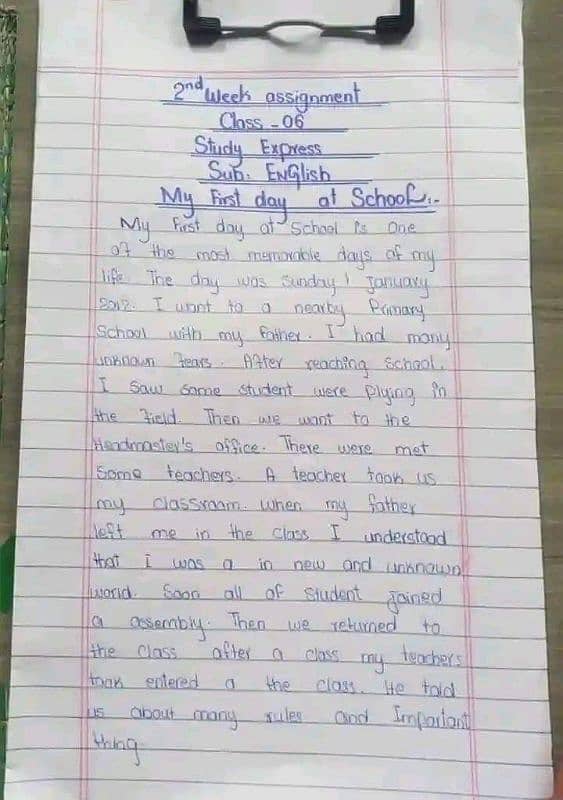 2nd Week assignment
Class - 06
Study Express
Sub: English
My First day at School:-
My First day at School is One
of the most memorable days of my
life. The day was Sunday 1 January
2012. I want to a nearby Primary
School with my Father. I had many
unknown Fears. After reaching School.
I Saw Some Student were Plying in
the Field. Then we want to the
Headmaster's office. There were met
Some teachers. A teacher took us
my classroom. when my father
left me in the class I understood
that I was a in new and unknown
world. Soon all of Student Joined
a assembly. Then we returned to
the class after a class my teachers
took entered a the class. He told
us about many rules and Important
thing